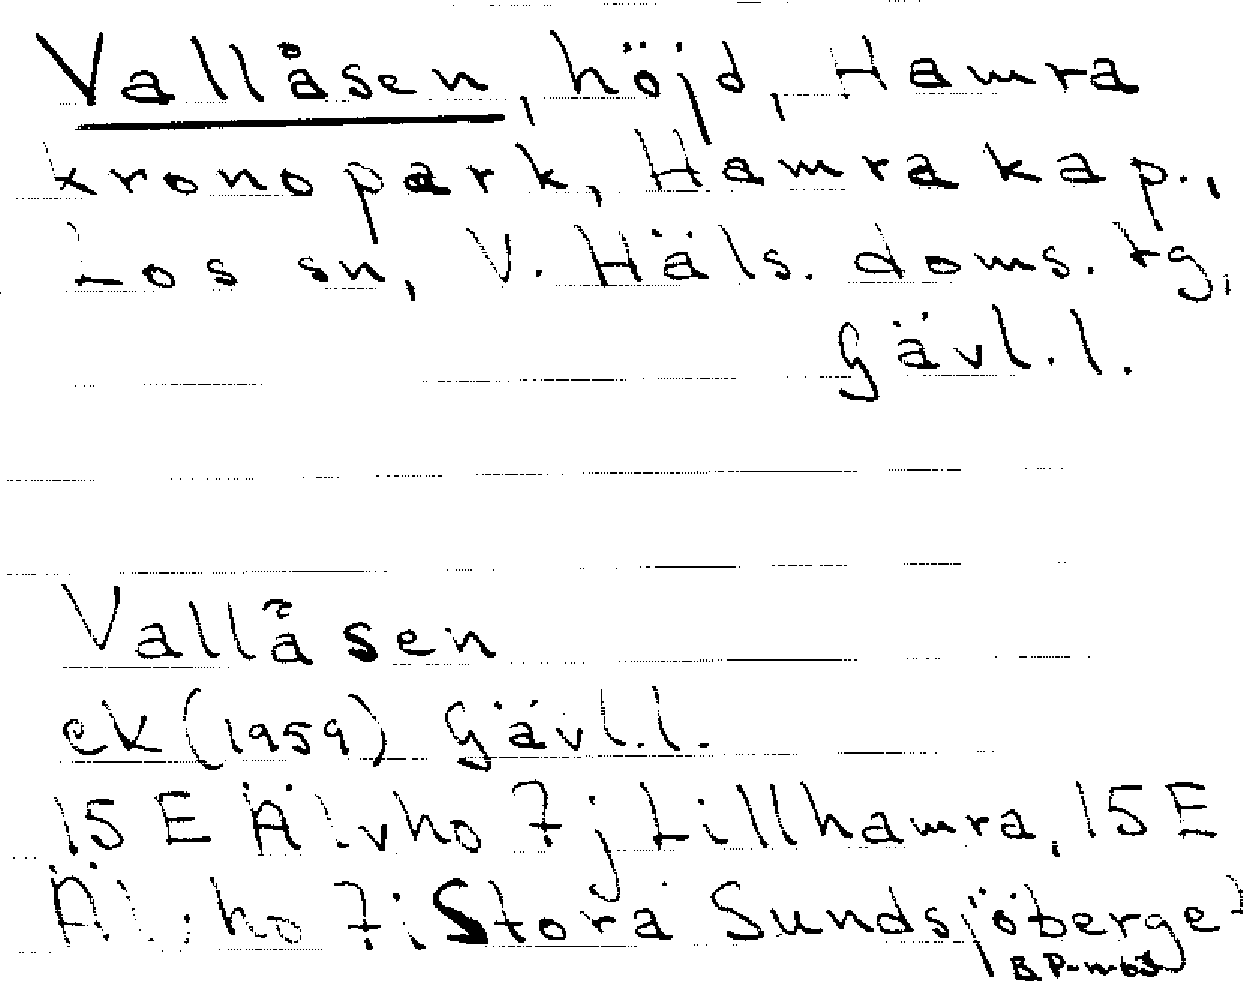 Vallåsen, höjd, Hamra
kronopark, Hamra kap.,
Los sn, V. Häls. doms. tg,
Gävl. l.
Vallåsen
ek (1959) Gävl. l.
15 E Älvho 7j Lillhamra, 15 E
Älvho 7i Stora Sundsjöberget